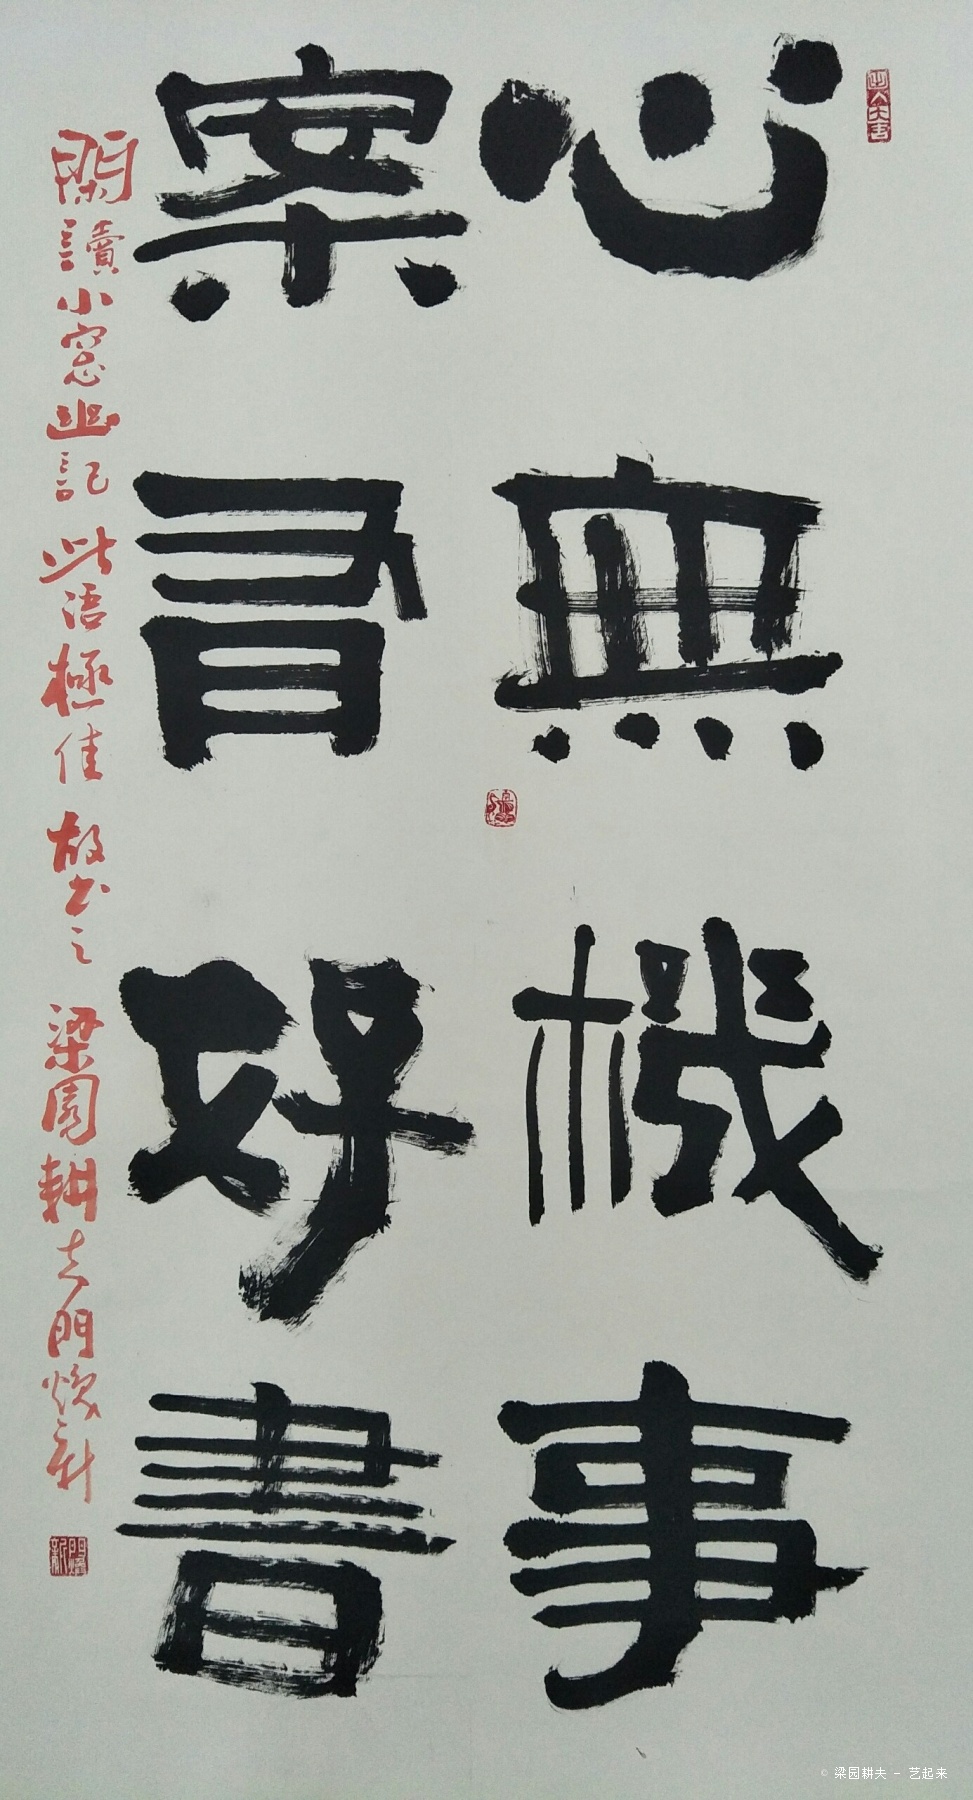 心無機事
案有好書
閑讀小窓幽記此语極佳故书之梁園耕夫門焕新
© 梁园耕夫 - 艺起来